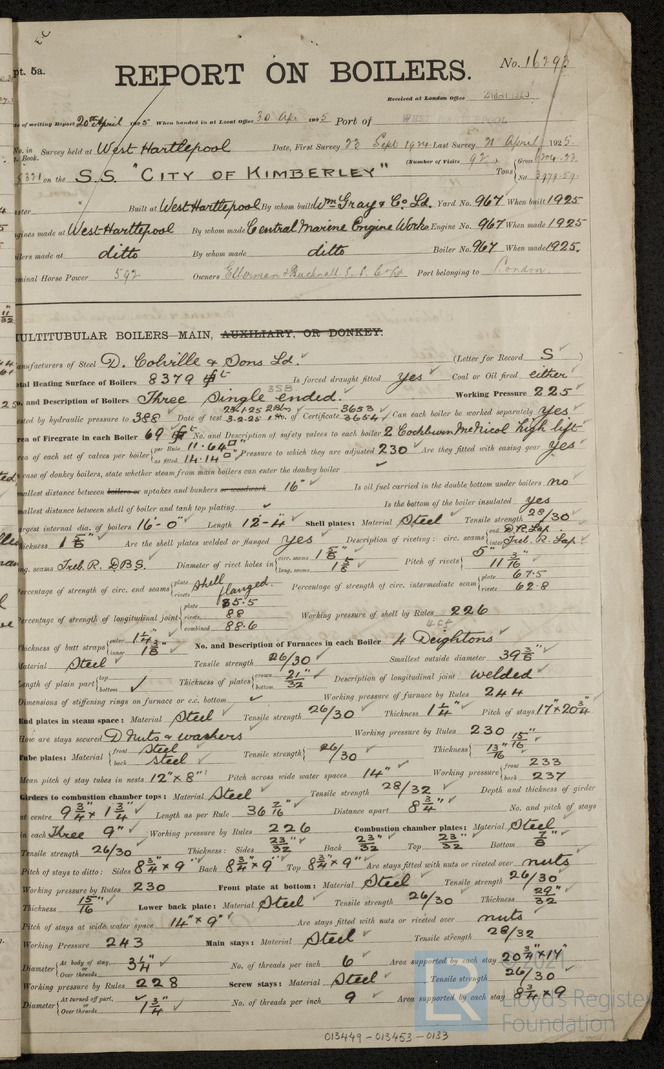 pt. 5a.
REPORT ON BOILERS.
No. 16293
Received at London Office
te of writing Report 20th April 1925 When handed in at Local Office 30 Apr 1925 Port of WEST HARTLEPOOL
No. in Survey held at West Hartlepool Date, First Survey 23 Sept 1924 Last Survey 21 April 1925
Book.
(Number of Visits 92)
on the S.S "CITY OF KIMBERLEY" Tons Gross Net
Built at West Hartlepool By whom built Wm Gray & Co Ld. Yard No. 967 When built 1925
gines made at West Hartlepool By whom made Central Marine Engine Works Engine No. 967 When made 1925
ilers made at ditto By whom made ditto Boiler No. 967 When made 1925.
minal Horse Power 592 Owners Ellerman & Bucknall S.S. Co Ld Port belonging to London
MULTITUBULAR BOILERS MAIN, AUXILIARY, OR DONKEY.
anufacturers of Steel D. Colville & Sons Ld. (Letter for Record S )
otal Heating Surface of Boilers 8379 Is forced draught fitted yes Coal or Oil fired either
o. and Description of Boilers Three Single ended. Working Pressure 225
sted by hydraulic pressure to 388 Date of test No. of Certificate 3653 3654 Can each boiler be worked separately yes
rea of Firegrate in each Boiler 69 No. and Description of safety valves to each boiler 2 Cockburn McNicol high lift
ea of each set of valves per boiler per Rule 11.64 as fitted 14.14 Pressure to which they are adjusted 230 Are they fitted with easing gear yes
case of donkey boilers, state whether steam from main boilers can enter the donkey boiler
mallest distance between boilers or uptakes and bunkers or woodwork 16" Is oil fuel carried in the double bottom under boilers no
mallest distance between shell of boiler and tank top plating Is the bottom of the boiler insulated yes
argest internal dia. of boilers 16'-0" Length 12'-4 Shell plates: Material Steel Tensile strength 28/30
hickness 1 5/8 Are the shell plates welded or flanged yes Description of riveting: circ. seams end D.R. Lap. inter Treb. R. Lap
ng. seams Treb. R. D.B.S. Diameter of rivet holes in circ. seams 1 5/8 long. seams 1 5/8 Pitch of rivets 5" 11 3/16
Percentage of strength of circ. end seams plate rivets shell flanged. Percentage of strength of circ. intermediate seam plate 67.5 rivets 62.8
Percentage of strength of longitudinal joint plate 85.5 rivets 88 combined 88.6 Working pressure of shell by Rules 226
Thickness of butt straps outer 1 1/4 inner 1 3/8 No. and Description of Furnaces in each Boiler 4 Deightons
Material Steel Tensile strength 26/30 Smallest outside diameter 39 3/8
ength of plain part top bottom Thickness of plates crown bottom 21"/32 Description of longitudinal joint welded
Dimensions of stiffening rings on furnace or c.c. bottom Working pressure of furnace by Rules 244
End plates in steam space: Material Steel Tensile strength 26/30 Thickness 1 1/4" Pitch of stays 17" x 20 3/4
How are stays secured D. nuts & washers Working pressure by Rules 230
Tube plates: Material front Steel back Steel Tensile strength 26/30 Thickness 15"/16 13"/16
Mean pitch of stay tubes in nests 12" x 8" Pitch across wide water spaces 14" Working pressure front 233 back 237
Girders to combustion chamber tops: Material Steel Tensile strength 28/32 Depth and thickness of girder
at centre 9 3/4" x 1 3/4" Length as per Rule 36 7/16 Distance apart 8 3/4" No. and pitch of stays
in each Three 9" Working pressure by Rules 226 Combustion chamber plates: Material Steel
Tensile strength 26/30 Thickness: Sides 23"/32 Back 23"/32 Top 23"/32 Bottom 7/8
Pitch of stays to ditto: Sides 8 3/4" x 9" Back 8 3/4" x 9" Top 8 3/4" x 9" Are stays fitted with nuts or riveted over nuts
Working pressure by Rules 230 Front plate at bottom: Material Steel Tensile strength 26/30
Thickness 15"/16 Lower back plate: Material Steel Tensile strength 26/30 Thickness 29"/32
Pitch of stays at wide water space 14" x 9" Are stays fitted with nuts or riveted over nuts
Working Pressure 243 Main stays: Material Steel Tensile strength 28/32
Diameter At body of stay, or Over threads 3 1/4" No. of threads per inch 6 Area supported by each stay 20 3/4" x 17"
Working pressure by Rules 228 Screw stays: Material Steel Tensile strength 26/30
Diameter At turned off part, or Over threads 1 3/4" No. of threads per inch 9 Area supported by each stay 8 3/4" x 9
© 2021
LR
Lloyd's Register
Foundation
013449-013453-0133